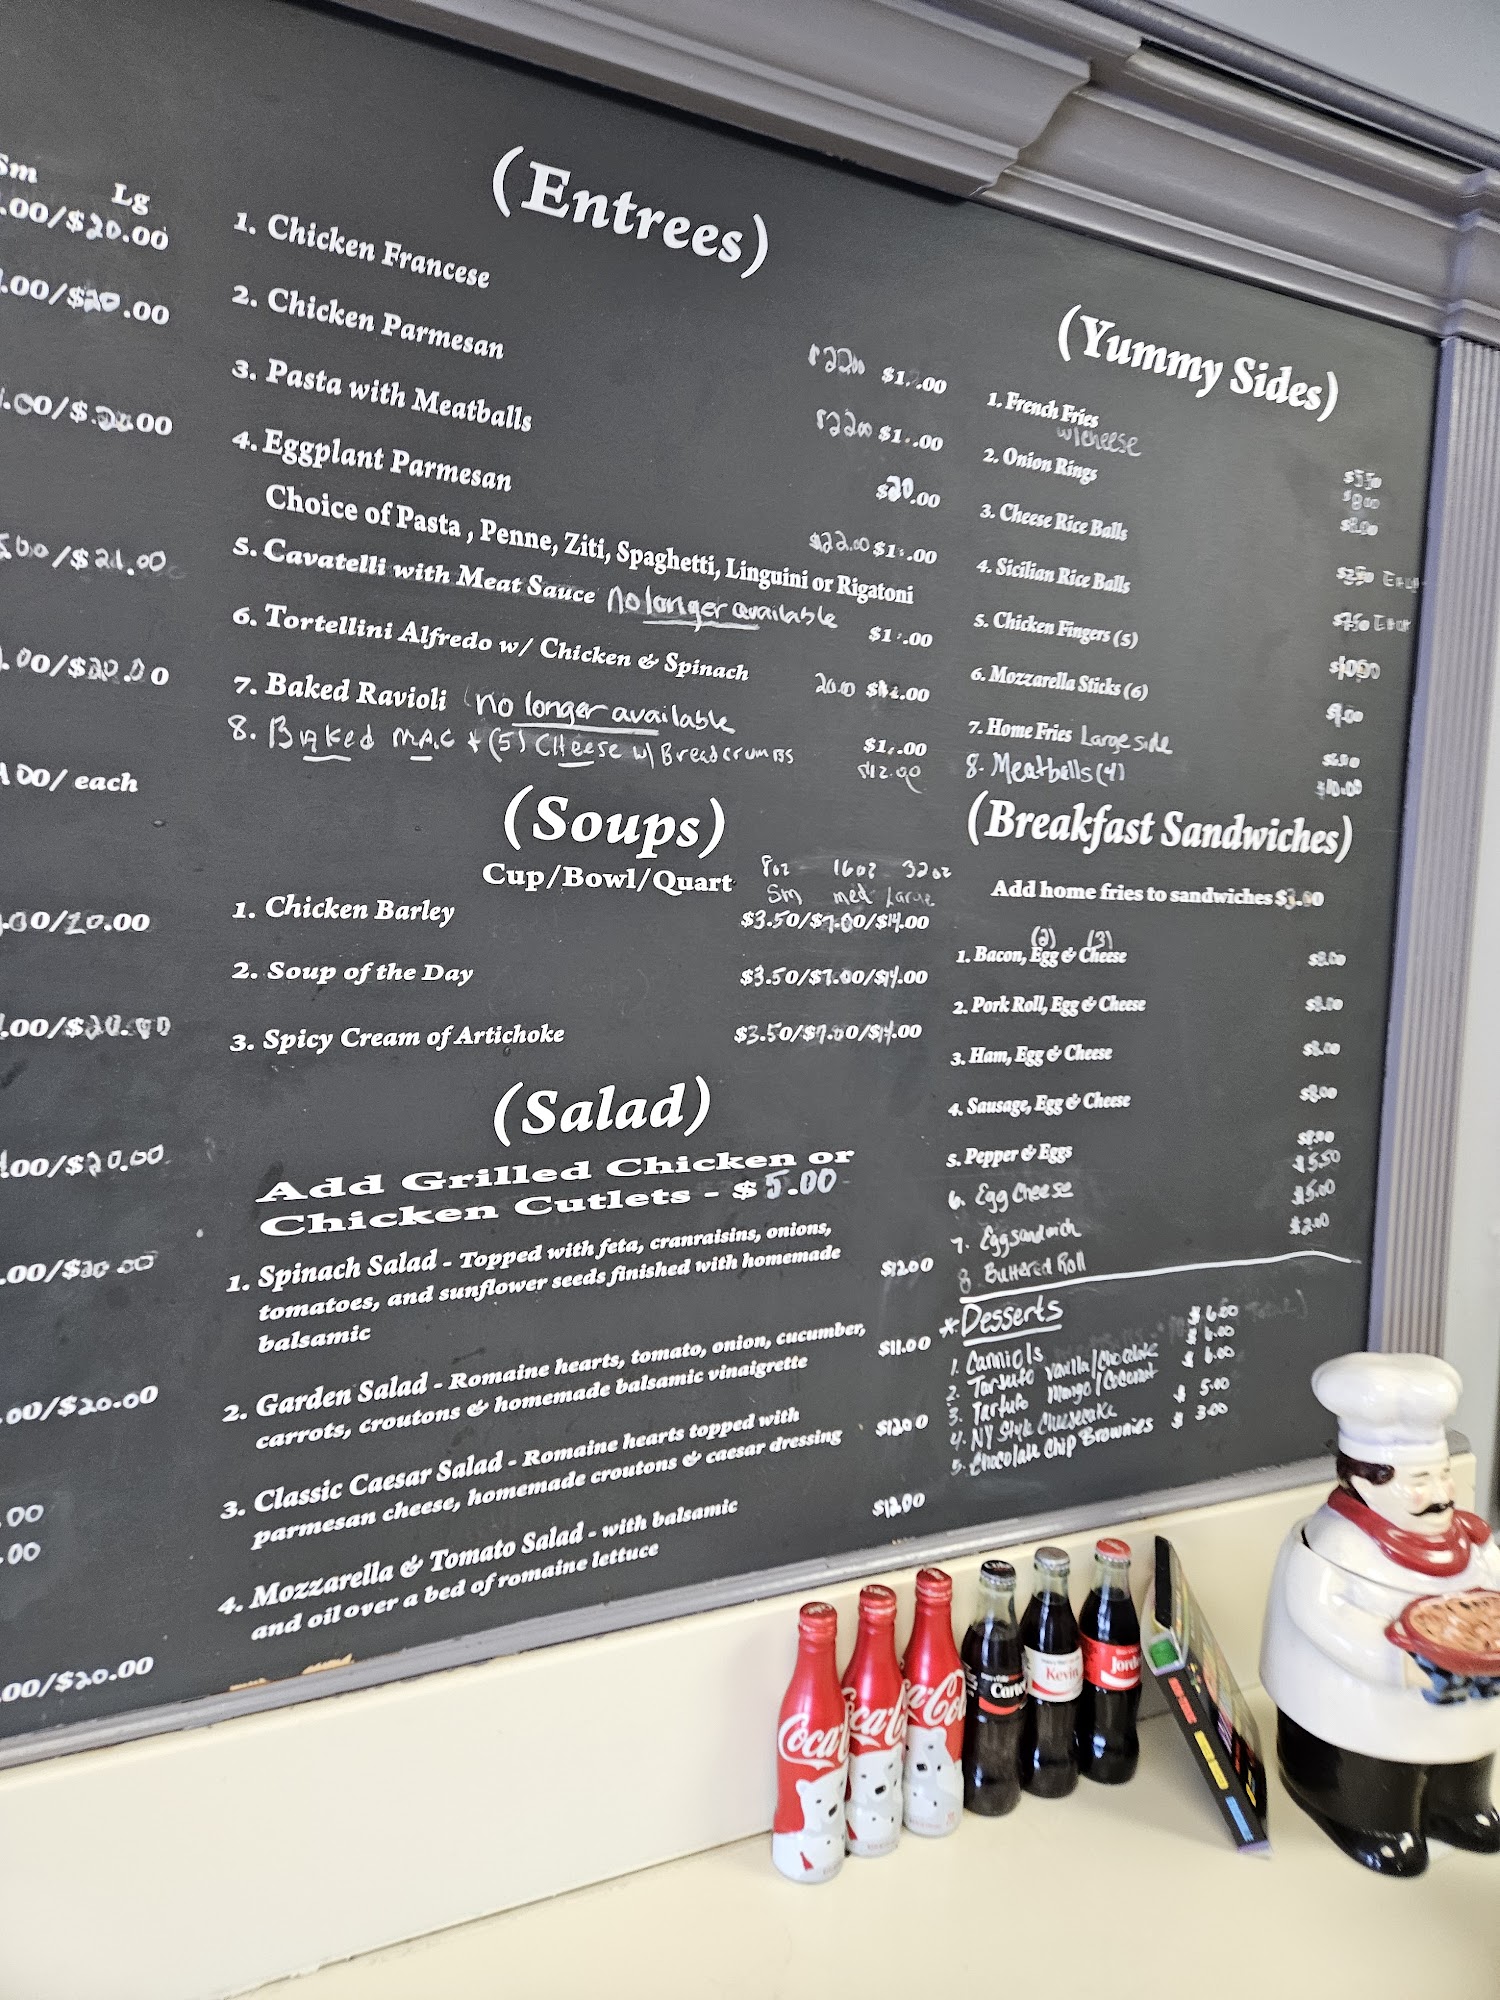 Sm Lg
.00/$20.00
.00/$20.00
.00/$.20.00
/$21.00
.00/$20.00
.00/ each
.00/20.00
.00/$20.00
.00/$20.00
.00/$20.00
.00/$20.00
.00
.00
.00/$20.00
(Entrees)
1. Chicken Francese
$22.00 $1 .00
2. Chicken Parmesan
$22.00 $1 .00
3. Pasta with Meatballs
$20.00
4. Eggplant Parmesan
$22.00 $1 .00
Choice of Pasta , Penne, Ziti, Spaghetti, Linguini or Rigatoni
5. Cavatelli with Meat Sauce No longer available
$1 .00
6. Tortellini Alfredo w/ Chicken & Spinach
20.00
7. Baked Ravioli no longer available
$1 .00
8. Baked MAC + (5) Cheese w/ Breadcrumbs
$12.00
(Soups)
Cup/Bowl/Quart
8oz 16oz 32oz
Sm med Large
1. Chicken Barley $3.50/$7.00/$14.00
2. Soup of the Day $3.50/$7.00/$14.00
3. Spicy Cream of Artichoke $3.50/$7.00/$14.00
(Salad)
Add Grilled Chicken or
Chicken Cutlets - $ 5.00
1. Spinach Salad - Topped with feta, cranraisins, onions, $12.00
tomatoes, and sunflower seeds finished with homemade
balsamic
2. Garden Salad - Romaine hearts, tomato, onion, cucumber, $11.00
carrots, croutons & homemade balsamic vinaigrette
3. Classic Caesar Salad - Romaine hearts topped with $12.00
parmesan cheese, homemade croutons & caesar dressing
4. Mozzarella & Tomato Salad - with balsamic $12.00
and oil over a bed of romaine lettuce
(Yummy Sides)
1. French Fries $5.50
w/cheese $8.00
2. Onion Rings $8.00
3. Cheese Rice Balls Each
4. Sicilian Rice Balls Each
5. Chicken Fingers (5) $10.00
6. Mozzarella Sticks (6)
7. Home Fries Large side
8. Meatballs (4) $10.00
(Breakfast Sandwiches)
Add home fries to sandwiches $3.00
(2) (3)
1. Bacon, Egg & Cheese $8.00
2. Pork Roll, Egg & Cheese $8.00
3. Ham, Egg & Cheese $8.00
4. Sausage, Egg & Cheese $8.00
5. Pepper & Eggs $8.00
6. Egg Cheese $5.50
7. Egg sandwich $5.00
8. Buttered Roll $2.00
* Desserts
1. Cannolis $6.00
2. Tartufo Vanilla/Chocolate $6.00
3. Tartufo Mango/Coconut $6.00
4. NY Style Cheesecake $5.00
5. Chocolate Chip Brownies $3.00
Coca
Coca-C
Coca-Col
Carter
Kevin
Jord